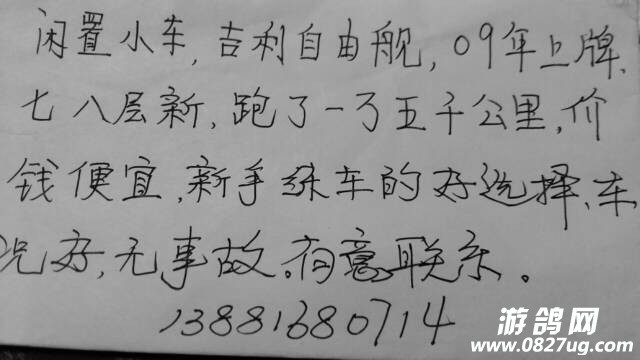 闲置小车，吉利自由舰，09年上牌、
七八层新，跑了一万五千公里，价
钱便宜，新手练车的好选择、车
况好，无事故。有意联系。
13881680714
游鸽网
www.0827ug.com